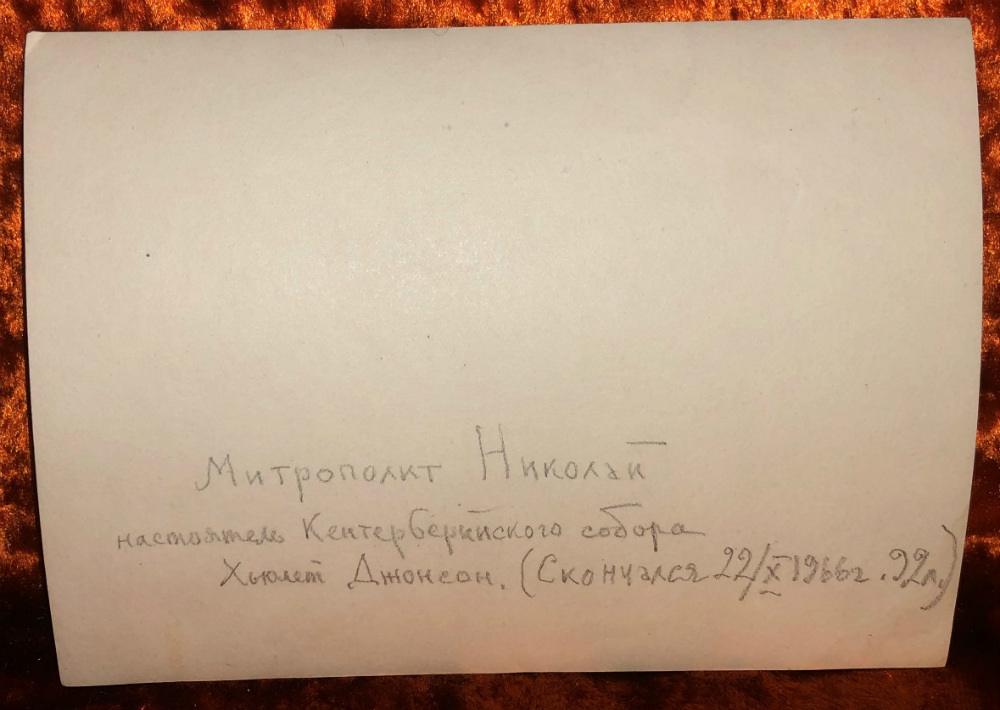 Митрополит Николай
настоятель Кентерберийского собора
Хьюлет Джонсон. (Скончался 22/X 1966г. 92л.)